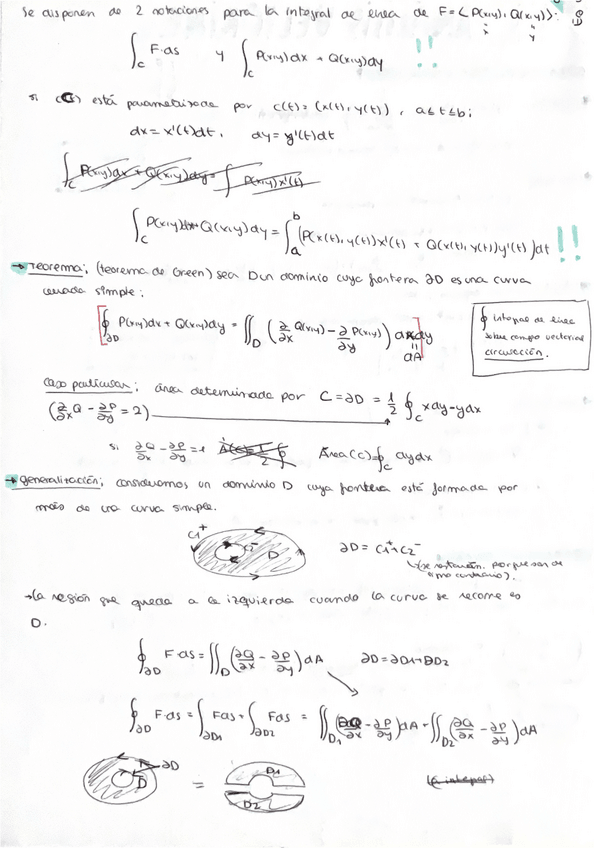 Se disponen de 2 notaciones para la integral de línea de F = <P(x,y), Q(x,y)>:
∫_C F·ds y ∫_C P(x,y)dx + Q(x,y)dy !!
si (C) está parametrizada por c(t) = (x(t), y(t)), a ≤ t ≤ b;
dx = x'(t)dt, dy = y'(t)dt
∫_C P(x,y)dx + Q(x,y)dy = ∫ P(x,y)x'(t)
∫_C P(x,y)dx + Q(x,y)dy = ∫_a^b (P(x(t), y(t))x'(t) + Q(x(t), y(t))y'(t))dt !!
→ Teorema; (teorema de Green) sea D un dominio cuya frontera ∂D es una curva
cerrada simple:
∮_∂D P(x,y)dx + Q(x,y)dy = ∬_D (∂/∂x Q(x,y) - ∂/∂y P(x,y)) dxdy
dA
∮ integral de línea
sobre campo vectorial
circulación.
caso particular; área determinada por C = ∂D = 1/2 ∮_C xdy - ydx
(∂/∂x Q - ∂P/∂y = 2)
si ∂Q/∂x - ∂P/∂y = 1 A(C) = 1/2 ∮ Área(C) = ∮_C dydx
→ generalización; consideramos un dominio D cuya frontera está formada por
más de una curva simple.
C1⁺ C2⁻ D ∂D = C1⁺ + C2⁻
(se restarían. porque son de
signo contrario).
→ La región que queda a la izquierda cuando la curva se recorre es
D.
∮_∂D F·ds = ∬_D (∂Q/∂x - ∂P/∂y) dA ∂D = ∂D1 + ∂D2
∮_∂D F·ds = ∫_∂D1 Fds + ∫_∂D2 Fds = ∬_D1 (∂Q/∂x - ∂P/∂y) dA + ∬_D2 (∂Q/∂x - ∂P/∂y) dA
∂D D = D1 D2
(la integral)